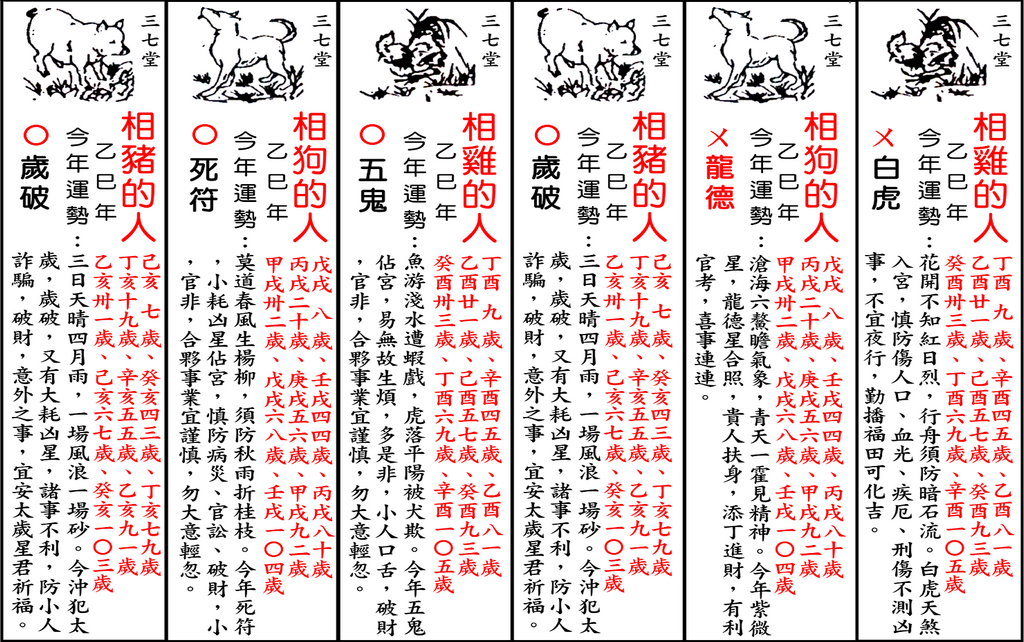 三七堂
相雞的人
丁酉 九 歲、辛酉四五歲、乙酉八一歲
乙酉廿一歲、己酉五七歲、癸酉九三歲
癸酉卅三歲、丁酉六九歲、辛酉一〇五歲
乙巳年
今年運勢:花開不知紅日烈,行舟須防暗石流。白虎天煞
入宮,慎防傷人口、血光、疾厄、刑傷不測凶
事,不宜夜行,勤播福田可化吉。
ㄨ白虎
三七堂
相狗的人
戊戌 八 歲、壬戌四四歲、丙戌八十歲
丙戌二十歲、庚戌五六歲、甲戌九二歲
甲戌卅二歲、戊戌六八歲、壬戌一〇四歲
乙巳年
今年運勢:滄海六鰲瞻氣象,青天一霍見精神。今年紫微
星,龍德星合照,貴人扶身,添丁進財,有利
官考,喜事連連。
ㄨ龍德
三七堂
相豬的人
己亥 七 歲、癸亥四三歲、丁亥七九歲
丁亥十九歲、辛亥五五歲、乙亥九一歲
乙亥卅一歲、己亥六七歲、癸亥一〇三歲
乙巳年
今年運勢:三日天晴四月雨,一場風浪一場砂。今沖犯太
歲,歲破,又有大耗凶星,諸事不利,防小人
詐騙,破財,意外之事,宜安太歲星君祈福。
〇歲破
三七堂
相雞的人
丁酉 九 歲、辛酉四五歲、乙酉八一歲
乙酉廿一歲、己酉五七歲、癸酉九三歲
癸酉卅三歲、丁酉六九歲、辛酉一〇五歲
乙巳年
今年運勢:魚游淺水遭蝦戲,虎落平陽被犬欺。今年五鬼
佔宮,易無故生煩,多是非,小人口舌,破財
,官非,合夥事業宜謹慎,勿大意輕忽。
〇五鬼
三七堂
相狗的人
戊戌 八 歲、壬戌四四歲、丙戌八十歲
丙戌二十歲、庚戌五六歲、甲戌九二歲
甲戌卅二歲、戊戌六八歲、壬戌一〇四歲
乙巳年
今年運勢:莫道春風生楊柳,須防秋雨折桂枝。今年死符
,小耗凶星佔宮,慎防病災、官訟、破財,小
,官非,合夥事業宜謹慎,勿大意輕忽。
〇死符
三七堂
相豬的人
己亥 七 歲、癸亥四三歲、丁亥七九歲
丁亥十九歲、辛亥五五歲、乙亥九一歲
乙亥卅一歲、己亥六七歲、癸亥一〇三歲
乙巳年
今年運勢:三日天晴四月雨,一場風浪一場砂。今沖犯太
歲,歲破,又有大耗凶星,諸事不利,防小人
詐騙,破財,意外之事,宜安太歲星君祈福。
〇歲破